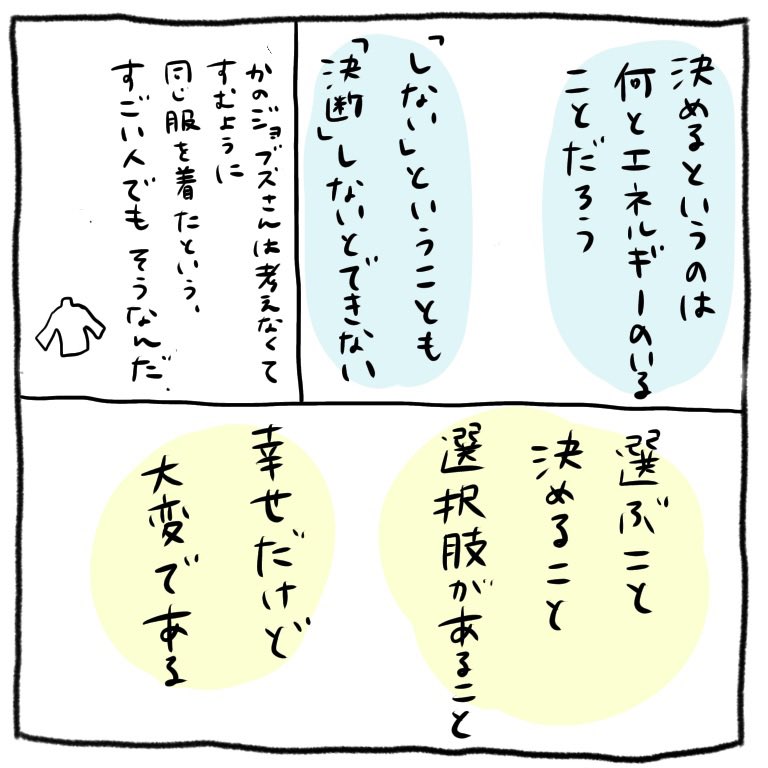 決めるというのは
何とエネルギーのいる
ことだろう
「しない」ということも
「決断」しないとできない
かのジョブズさんは考えなくて
すむように
同じ服を着たという、
すごい人でもそうなんだ.
選ぶこと
決めること
選択肢があること
幸せだけど
大変である